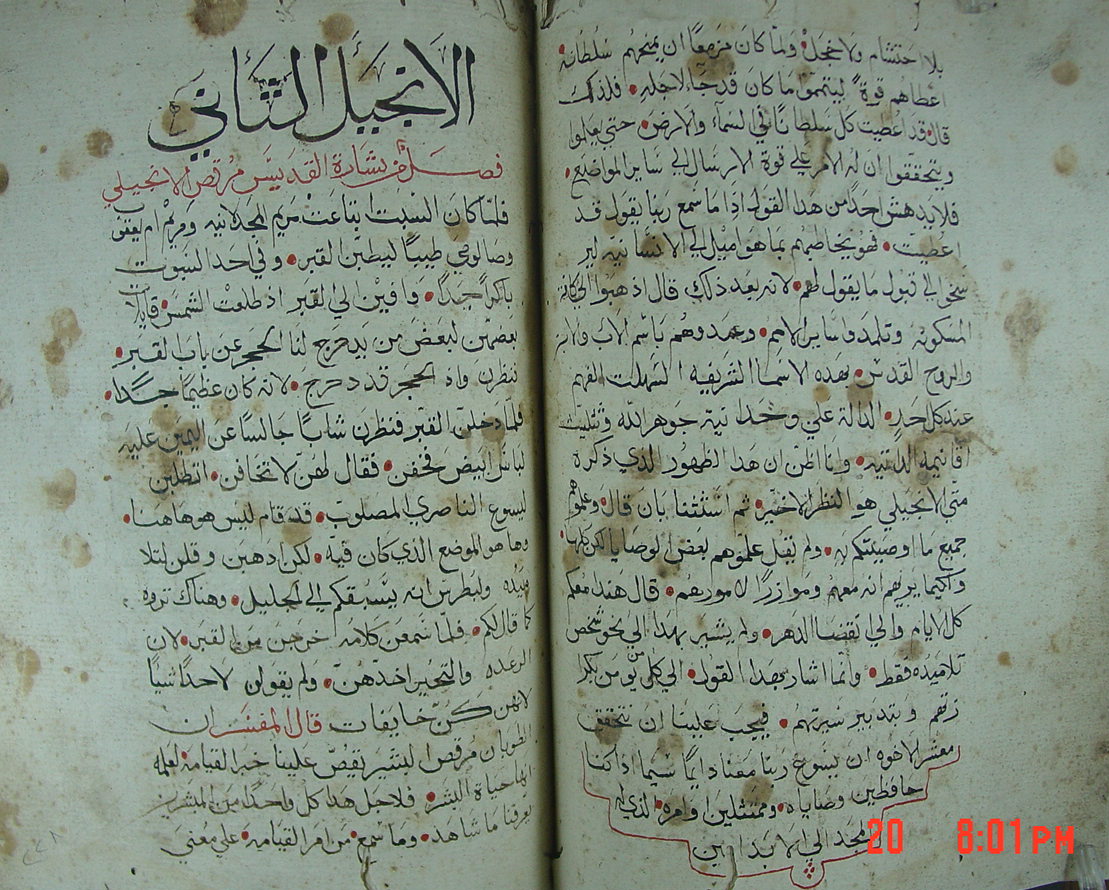 بلا احتشام ولا خجل ولما كان مزمعا ان يمنحهم سلطانه
اعطاهم قوة ليتمموا ما كان قد جا لاجله فلذلك
قال قد اعطيت كل سلطانا في السمآء والارض حتي يعلموا
ويتحققوا ان له الامر علي قوة الارسال الي ساير المواضيع
فلا يدهش احد من هدا القول اذا ما سمع ربنا يقول قد
اعطيت فهو يخاصمهم بما هو اميل الي الانسانيه
الي قبول ما يقول لهم لانه بعد ذلك قال اذهبوا الي كافة
المسكونه وتلمدوا ساير الامم وعمدوهم باسم الاب والابن
والروح القدس بهده الاسما الشريفه السهلت الفهم
عند كل احد الدالة علي وحدانية جوهر الله وتثليث
اقانيمه الداتيه وانا اظن ان هدا الظهور الذي ذكره
متي الانجيلي هو النظر الاخير ثم استثنا بان قال وعلموهم
جميع ما اوصيتكم به ولم يقل علموهم بعض الوصايا لكن كلها
وكيما يريهم انه معهم وموازرا لامورهم قال هندا معكم
كل الايام والي انقضا الدهر ولم يشير بهدا الي نحو شخص
تلاميده فقط وانما اشار بهدا القول الي كل من يومن بكر
زتهم وبتدبير سيرتهم فيجب علينا ان نتحقق
معشر الاخوه ان يسوع ربنا معنا دايما سيما اذا كنا
حافظين وصاياه وممتثلين اوامره الذي له
المجد الي الابد امين
الانجيل الثاني
فصل من بشارة القديس مرقص الانجيلي
فلما كان السبت ابتاعت مريم المجدلانيه ومريم ام يعقوب
وصالومي طيبا ليطيبن القبر وفي احد السبوت
باكرا جدا وافين الي القبر اذ طلعت الشمس قايلات
بعضهن لبعض من يدحرج لنا الحجر عن باب القبر
فنظرن واذ الحجر قد دحرج لانه كان عظيما جدا
فلما دخلن القبر فنظرن شابا جالسا عن اليمين عليه
لباس ابيض فخفن فقال لهن لا تخافن اتطلبن
ليسوع الناصري المصلوب قد قام ليس هو هاهنا
وها هو الموضع الذي كان فيه لكن ادهبن وقلن لتلا
ميده ولبطرس انه يسبقكم الي الجليل وهناك تروه
كما قال لكم فلما سمعن كلامه خرجن من القبر لان
الرعده والتحير اخدهن ولم يقولن لاحدا شيا
لانهن كن خايفات قال المفسر ان
الطوبان مرقص البشير يقص علينا خبر القيامه لعلمه
انها حياة البشر فلاجل هدا كل واحدا من المبشرين
يعرفنا ما شاهد وما سمع من امر القيامه علي معني
20 8:01PM